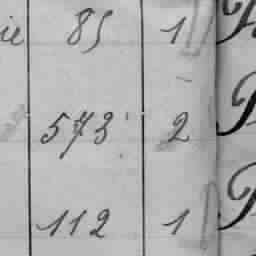 ie 85 1
573 2
112 1